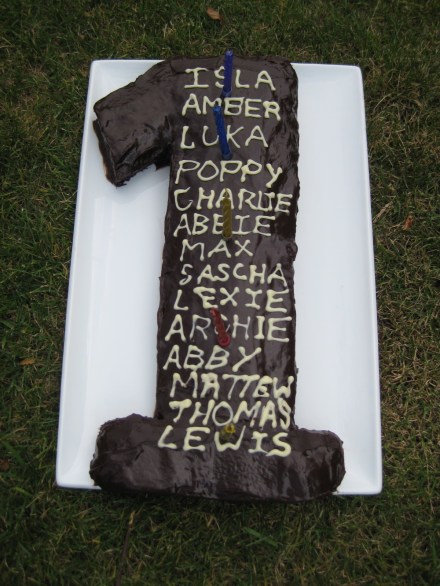 ISLA
AMBER
LUKA
POPPY
CHARLIE
ABBIE
MAX
SASCHA
LEXIE
ARCHIE
ABBY
MATTEW
THOMAS
LEWIS